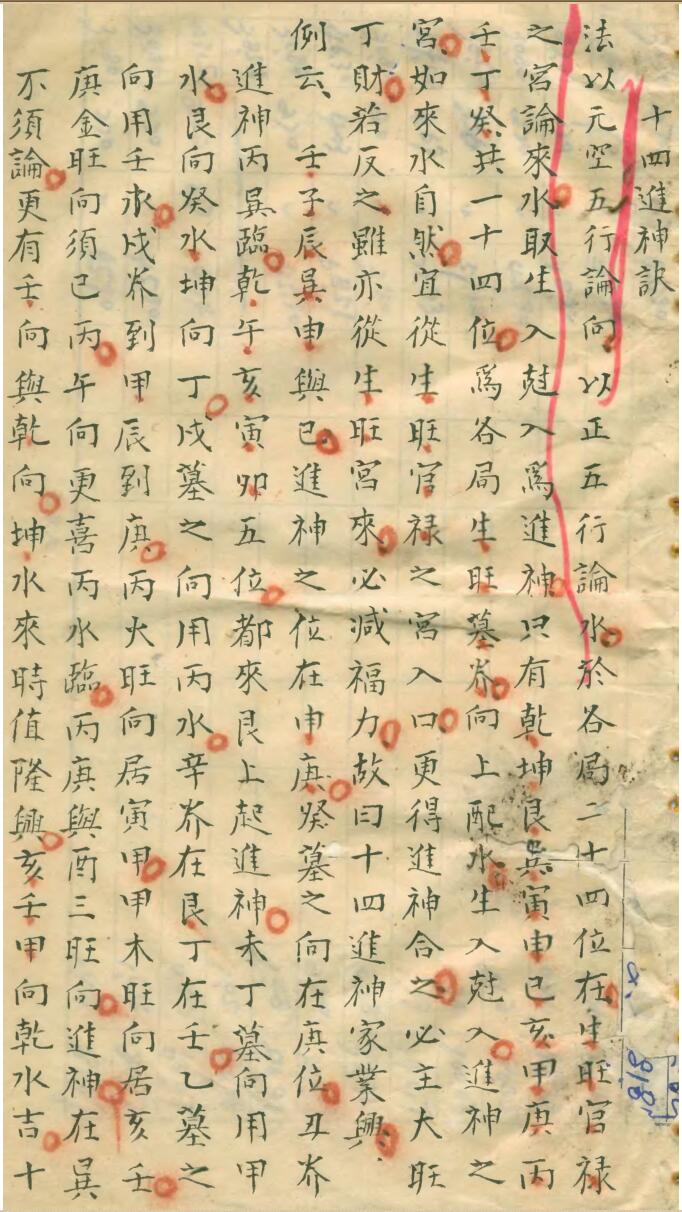 十四進神訣
法以元空五行論向以正五行論水於各局二十四位在生旺官祿
之宮論來水取生入尅入為進神只有乾坤艮巽寅申巳亥甲庚丙
壬丁癸共一十四位爲各局生旺墓养向上配水生入尅入進神之
宮如來水自然宜從生旺官禄之宮入口更得進神合之必主大旺
丁財若反之雖亦從生旺宮來必減福力故曰十四進神家業興
例云 壬子辰巽申與巳進神之位在申庚癸墓之向在庚位丑养
進神丙巽臨乾午亥寅卯五位都來艮上起進神未丁墓向用甲
水艮向癸水坤向丁戌墓之向用丙水辛养在艮丁在壬乙墓之
向用壬求戌养到甲辰到庚丙火旺向居寅甲甲木旺向居亥壬
庚金旺向須已丙午向更喜丙水臨丙庚與酉三旺向進神在巽
不須論更有壬向與乾向坤水來時值隆興亥壬甲向乾水吉十
818